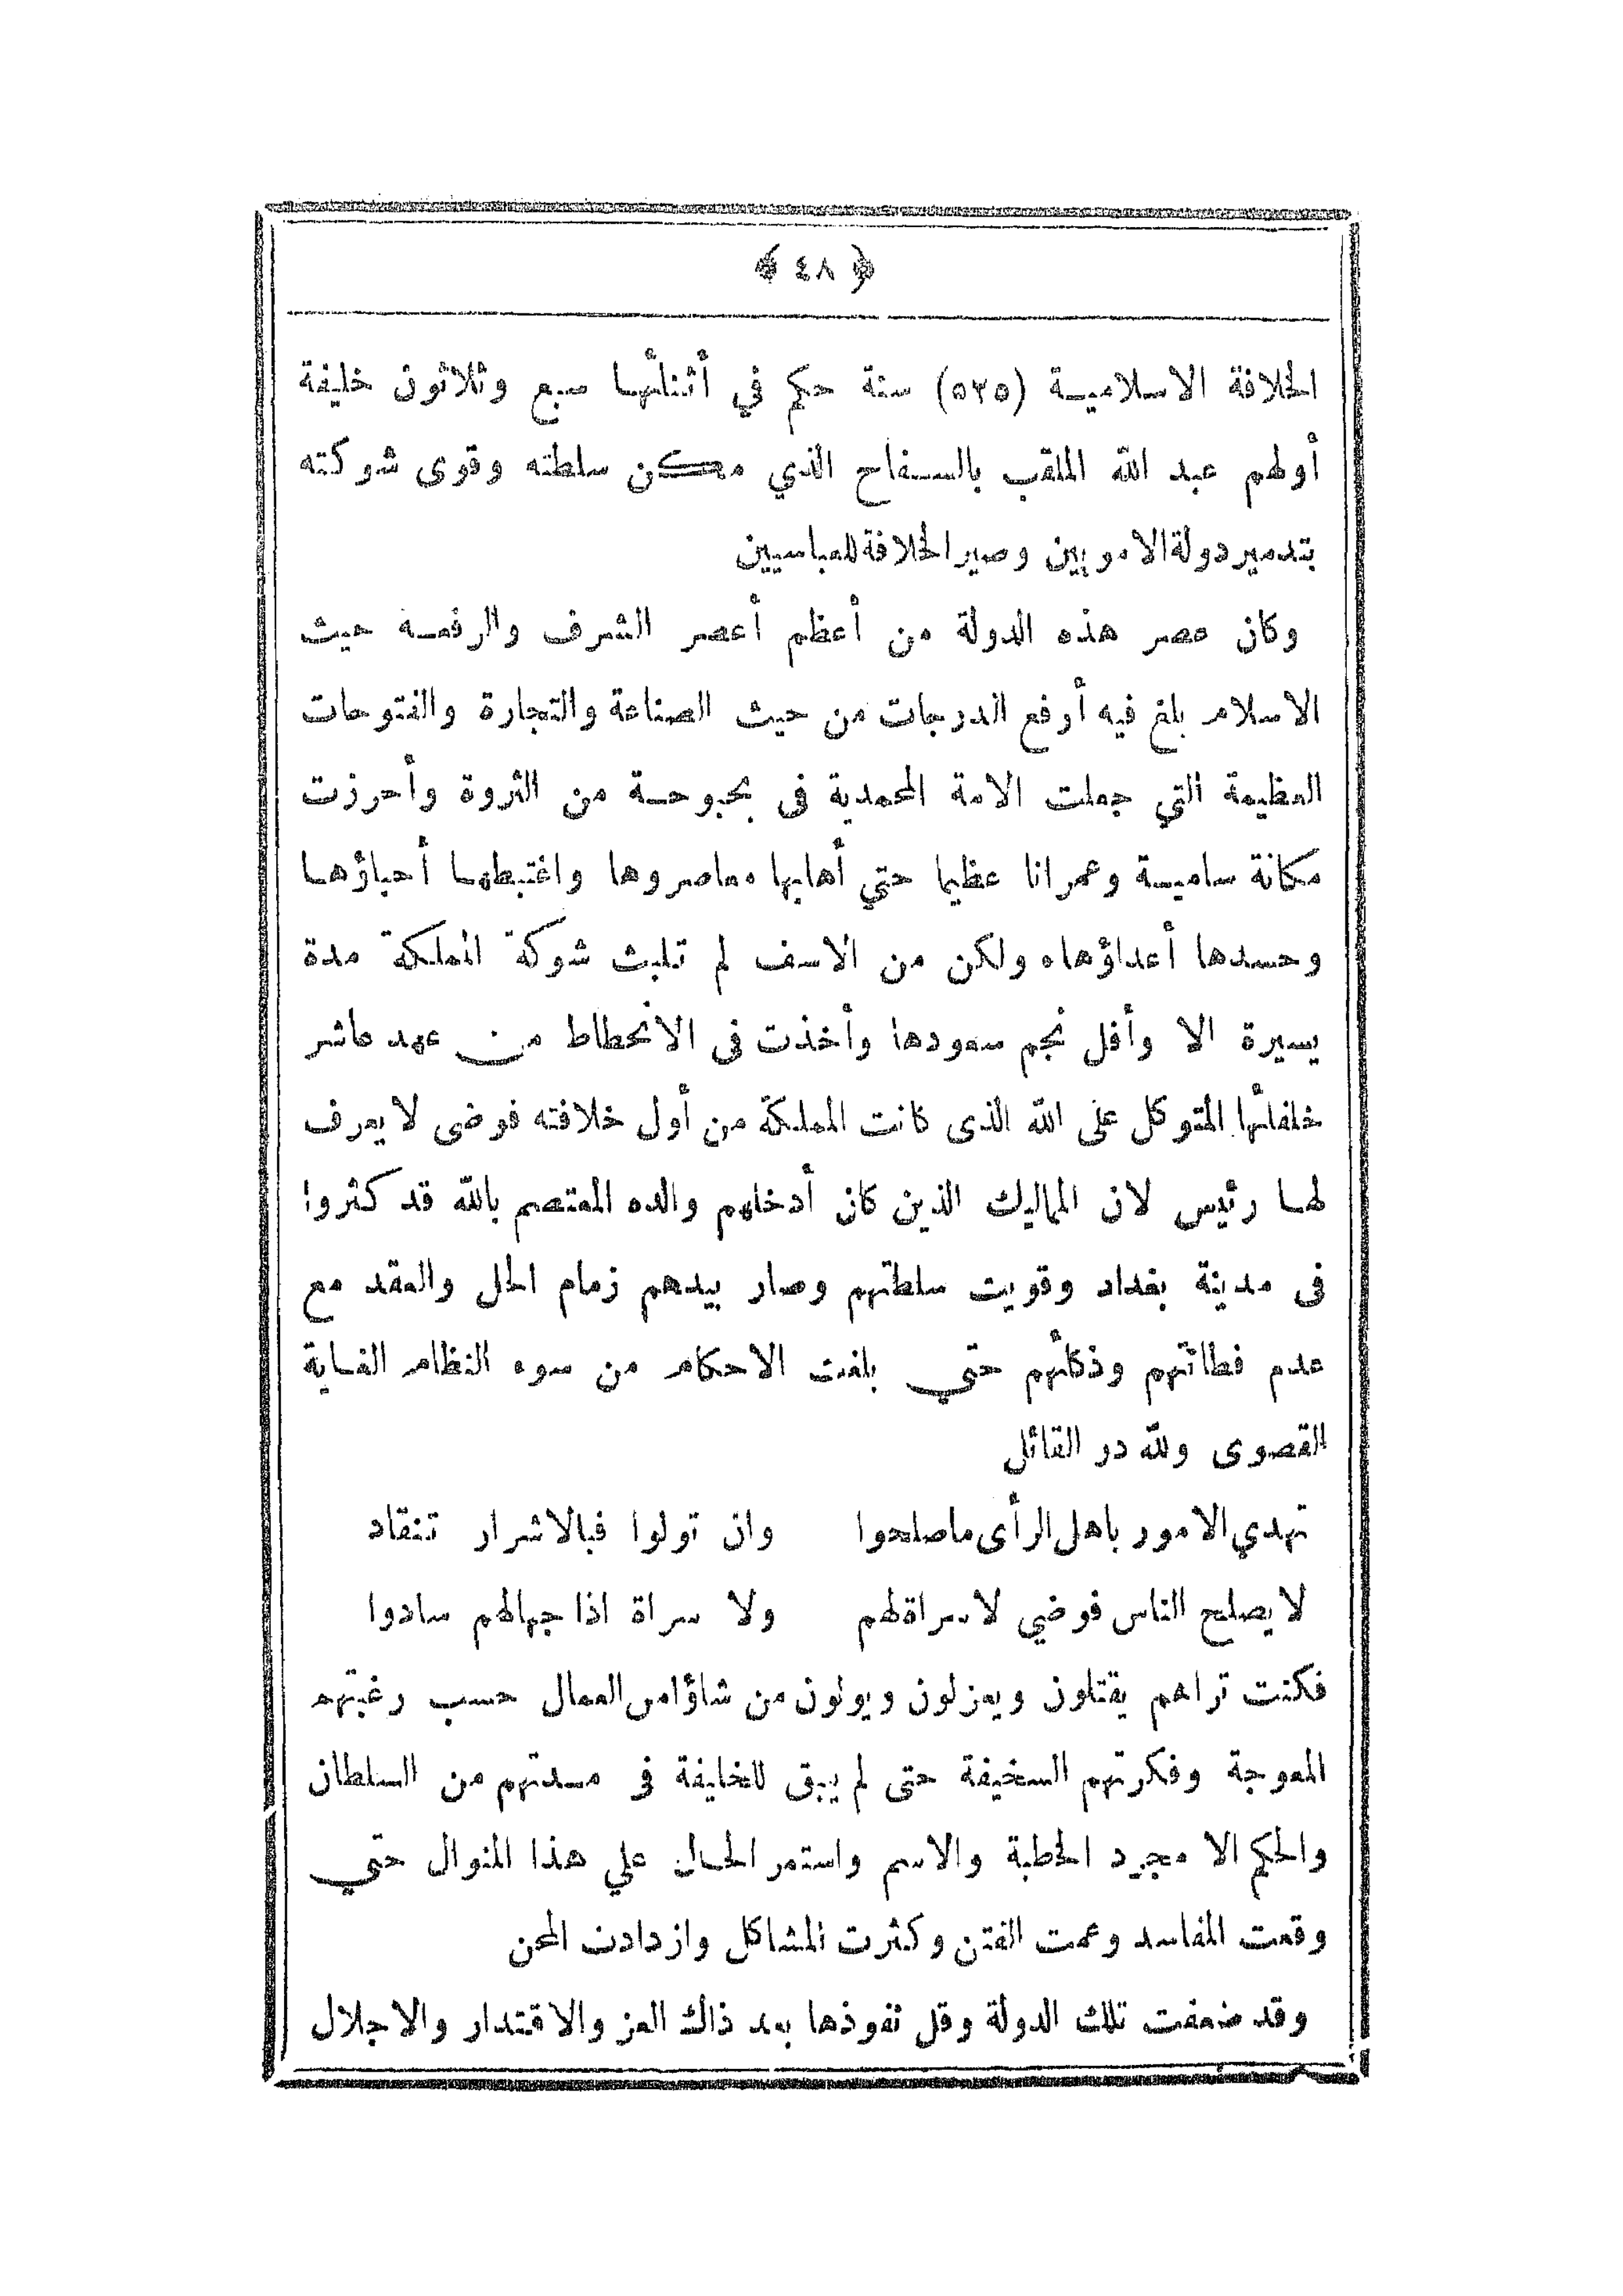 ﴿ ٤٨ ﴾
الخلافة الاسلامية (٥٢٥) سنة حكم في أثنائها سبع وثلاثون خليفة
أولهم عبد الله الملقب بالسفاح الذي مكن سلطته وقوى شوكته
بتدمير دولة الامويين وصير الخلافة للعباسيين
وكان عصر هذه الدولة من أعظم أعصر الشرف والرفعة حيث
الاسلام بلغ فيه أرفع الدرجات من حيث الصناعة والتجارة والفتوحات
العظيمة التي جعلت الامة المحمدية فى بحبوحة من الثروة وأحرزت
مكانة سامية وعمرانا عظيما حتي أهابها معاصروها واغتبطها أحباؤها
وحسدها أعداؤها ٥ ولكن من الاسف لم تلبث شوكة المملكة مدة
يسيرة الا وأفل نجم سعودها وأخذت فى الانحطاط من عهد عاشر
خلفائها المتوكل على الله الذى كانت المملكة من أول خلافته فوضى لا يعرف
لها رئيس لان المماليك الذين كان أدخلهم والده المعتصم بالله قد كثروا
فى مدينة بغداد وقويت سلطتهم وصار بيدهم زمام الحل والعقد مع
عدم فطانتهم وذكائهم حتي بلغت الاحكام من سوء النظام الغاية
القصوى ولله در القائل
تهدي الامور باهل الرأى ماصلحوا وان تولوا فبالاشرار تنقاد
لا يصلح الناس فوضي لا سراة لهم ولا سراة اذا جهالهم سادوا
فكنت تراهم يقتلون ويعزلون ويولون من شاؤا من العمال حسب رغبتهم
المعوجة وفكرتهم السخيفة حتى لم يبق للخليفة في مدتهم من السلطان
والحكم الا مجرد الخطبة والاسم واستمر الحال علي هذا المنوال حتي
وقعت المفاسد وعمت الفتن وكثرت المشاكل وازدادت المحن
وقد ضعفت تلك الدولة وقل نفوذها بعد ذاك العز والاقتدار والاجلال